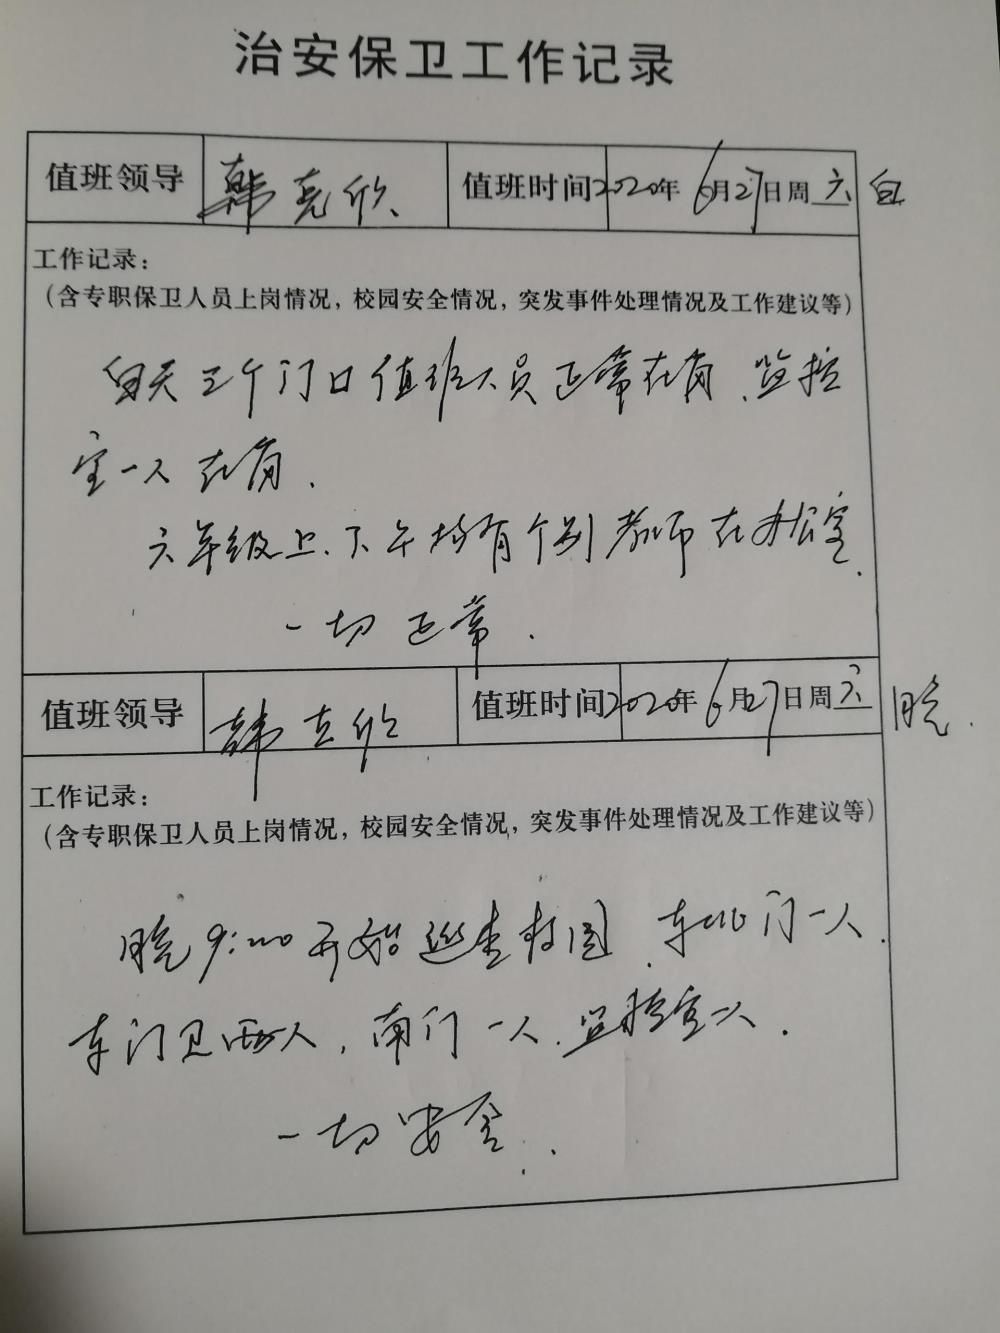 治安保卫工作记录
值班领导 韩克欣 值班时间 2020年6月27日周六 白
工作记录：
（含专职保卫人员上岗情况，校园安全情况，突发事件处理情况及工作建议等）
白天三个门口值班人员正常在岗、监控
室一人在岗.
六年级上、下午均有个别教师在办公室.
一切正常.
值班领导 韩克欣 值班时间 2020年6月27日周六 晚.
工作记录：
（含专职保卫人员上岗情况，校园安全情况，突发事件处理情况及工作建议等）
晚9:00开始巡查校园、东北门一人.
东门卫两人，南门一人.监控室一人.
一切安全.